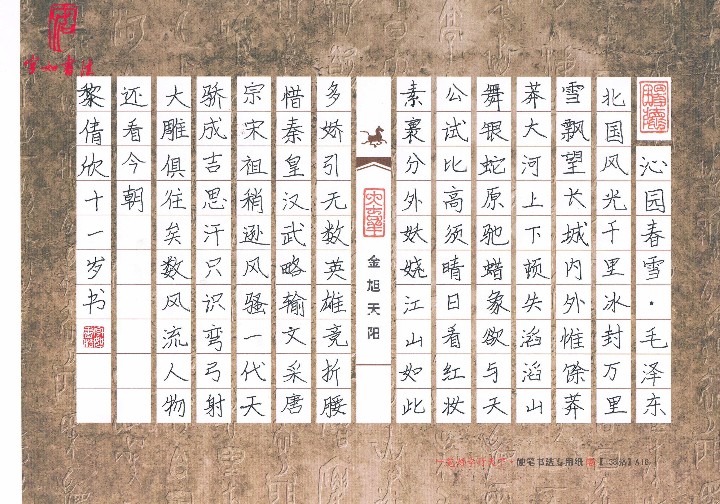 沁园春雪·毛泽东
北国风光千里冰封万里
雪飘望长城内外惟馀莽
莽大河上下顿失滔滔山
舞银蛇原驰蜡象欲与天
公试比高须晴日看红妆
素裹分外妖娆江山如此
金旭天阳
多娇引无数英雄竞折腰
惜秦皇汉武略输文采唐
宗宋祖稍逊风骚一代天
骄成吉思汗只识弯弓射
大雕俱往矣数风流人物
还看今朝
黎倩欣十一岁书
硬笔书法专用纸